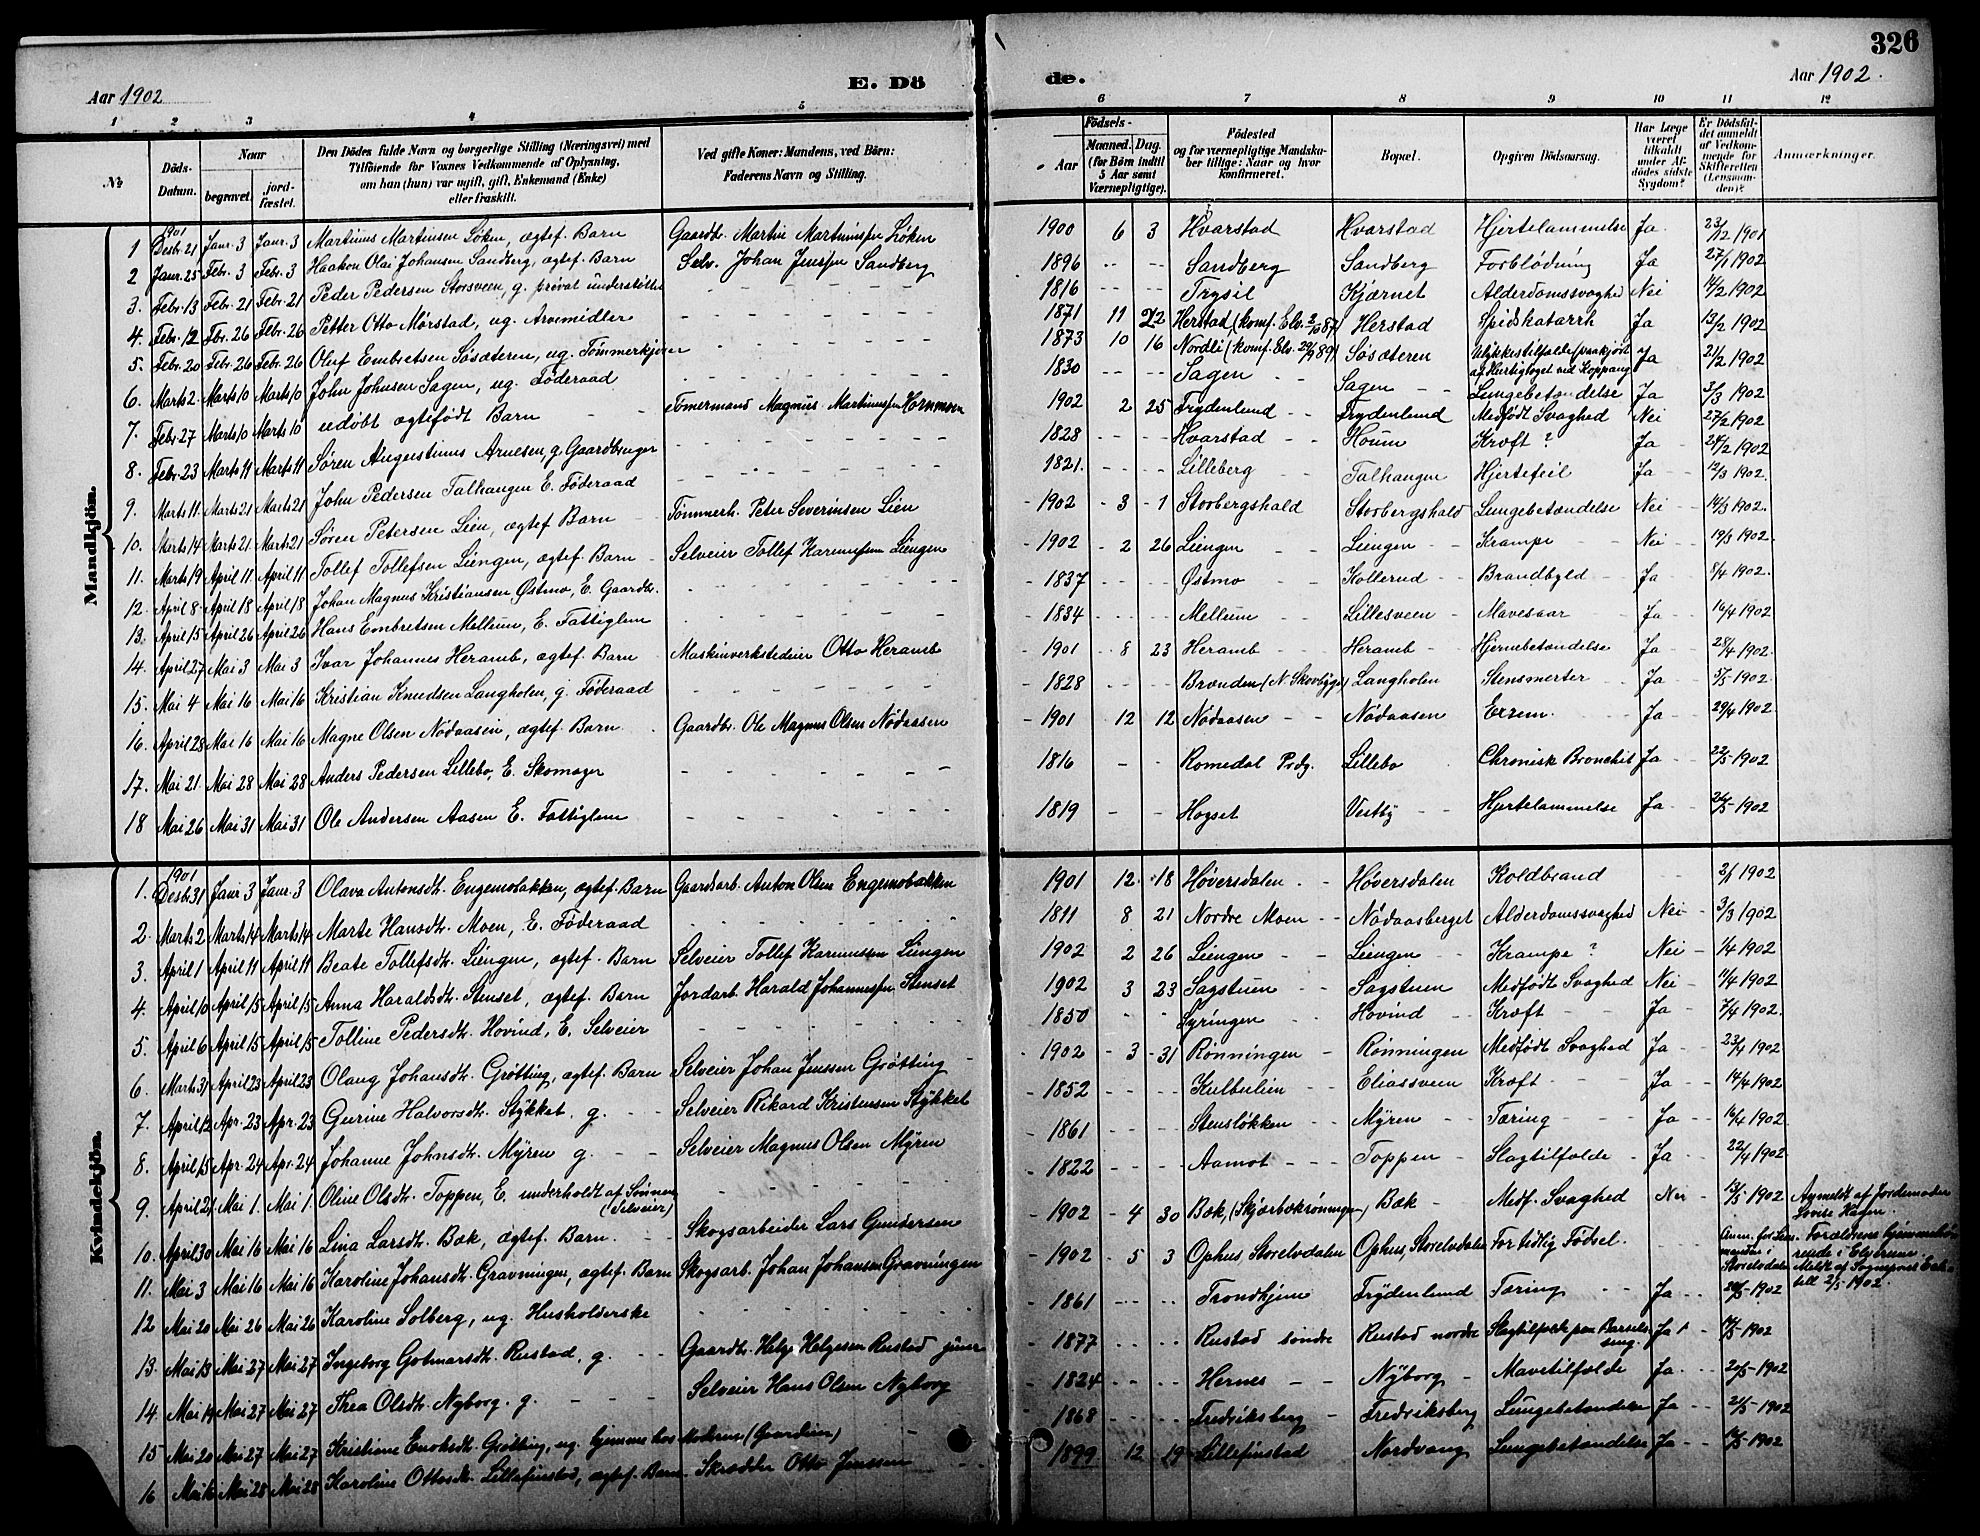 326
Aar 1902
E. Dö
de.
Aar 1902.
1 2 3 4 5 6 7 8 9 10 11 12
№
Döds-Datum.
Naar
begravet.
jord-fæstet.
Den Dödes fulde Navn og borgerlige Stilling (Næringsvei) med
Tilföiende for Voxnes Vedkommende af Oplysning,
om han (hun) var ugift, gift, Enkemand (Enke)
eller fraskilt.
Ved gifte Koner: Mandens, ved Börn:
Faderens Navn og Stilling.
Födsels-
Aar
Maaned.
Dag.
(for Börn indtil
5 Aar samt
Værnepligtige).
Födested
og for værnepligtige Mandska-
ber tillige: Naar og hvor
konfirmeret.
Bopæl.
Opgiven Dödsaarsag.
Har Læge
været
tilkaldt
under Af-
dödes sidste
Sygdom?
Er Dödsfal-
det anmeldt
af Vedkom-
mende for
Skifteretten
(Lensman-
den)?
Anmærkninger.
Mandkjön.
1 1901 Desbr. 21 Janr. 3 Janr. 3 Martinus Martinsen Løken, ægtef. Barn Gaardbr. Martin Martinussen Løken 1900 6 3 Hvarstad Hvarstad Hjertelammelse Ja 23/12 1901
2 Janr. 25 Febr. 3 Febr. 3 Haakon Olai Johansen Sandberg, ægtef. Barn Selv. Johan Jenssen Sandberg 1896 Sandberg Sandberg Forblødning Ja 27/1 1902
3. Febr. 13 Febr. 21 Febr. 21 Peder Pedersen Storsveen, g. privat understøttet 1816 Trysil Kjærnet Alderdomssvaghed Nei 14/2 1902
4. Febr. 12 Febr. 26 Febr. 26 Petter Otto Mørstad, ug. Arvemidler 1871 11 22 Herstad (konf. Elv. 2/10 87) Herstad Spidskatarrh Ja 13/2 1902
5. Febr. 20 Febr. 26 Febr. 26 Oluf Embretsen Søsæteren, ug. Tømmerkjører 1873 10 16 Nordli (konf. Elv. 29/9 89) Søsæteren Ulykkestilfælde (paakjørt af Hurtigtoget ved Koppang) Ja 21/2 1902
6. Marts 2 Marts 10 Marts 10 John Johnsen Sagen, ug. Føderaad 1830 Sagen Sagen Lungebetændelse Ja 3/3 1902
7. Febr. 27 Marts 10 Marts 10 udøbt ægtefødt Barn Tømermand Magnus Martinussen Hornmoen 1902 2 25 Frydenlund Frydenlund Medfødt Svaghed Nei 27/2 1902
8. Febr. 23 Marts 11 Marts 11 Søren Augustinus Arnesen, g. Gaardbruger 1828 Hvarstad Houm Kræft? Ja 24/2 1902
9. Marts 11 Marts 21 Marts 21 John Pedersen Talhaugen E. Føderaad 1821. Lilleberg Talhaugen Hjertefeil Ja 12/3 1902.
10. Marts 14 Marts 21 Marts 21 Søren Petersen Lien, ægtef. Barn Tømmerh. Peter Severinsen Lien 1902 3 1 Storbergshald Storbergshald Lungebetændelse Nei 14/3 1902.
11. Marts 19 April 11 April 11 Tollef Tollefsen Liengen, ægtef. Barn Selveier Tollef Karinussen Liengen 1902 2 26 Liengen Liengen Krampe Nei 19/3 1902.
12. April 8 April 18 April 18 Johan Magnus Kristiansen Østmo, E. Gaardbr. 1837 Østmo Kollerud Brandbyld Ja 8/4 1902.
13. April 15 April 26 April 26 Hans Embretsen Mellum, E. Fattiglem 1834 Mellum Lillesveen Mavesaar Ja 16/4 1902
14. April 27 Mai 3 Mai 3 Ivar Johannes Heramb, ægtef. Barn Maskinverkstedeier Otto Heramb 1901 8 23 Heramb Heramb Hjernebetændelse Ja 28/4 1902.
15. Mai 4 Mai 16 Mai 16 Kristian Knudsen Langholen, g. Føderaad 1828 Brænden (N. Skovbygd) Langholen Stensmerter Ja 5/5 1902.
16. April 28 Mai 16 Mai 16 Magne Olsen Nødaasen, ægtef. Barn Gaardbr. Ole Magnus Olsen Nødaasen 1901 12 12 Nødaasen Nødaasen Exzem Ja 29/4 1902.
17. Mai 21 Mai 28 Mai 28 Anders Pedersen Lillebo, E. Skomager 1816 Romedal Prdg. Lillebo Chronisk Bronchit Ja 22/5 1902
18 Mai 26 Mai 31 Mai 31 Ole Andersen Aasen E. Fattiglem 1819 Hogset Vestby Hjertelammelse Ja 26/5 1902
Kvindekjön.
1. 1901 Desbr. 31 Janr. 3 Janr. 3 Olava Antonsdtr. Engemobakken, ægtef. Barn Gaardarb. Anton Olsen Engemobakken 1901 12 18 Høversdalen Høversdalen Koldbrand 3/1 1902
2. Marts 2 Marts 14 Marts 14 Marte Hansdtr. Moen, E. Føderaad 1811 8 21 Nordre Moen Nødaasberget Alderdomssvaghed Nei 3/3 1902
3. April 1 April 11 April 11 Beate Tollefsdtr. Liengen, ægtef. Barn Selveier Tollef Karinussen Liengen 1902 2 26 Liengen Liengen Krampe? Nei 1/4 1902
4. April 10 April 15 April 15 Anna Haraldsdtr. Stenset, ægtef. Barn Jordarb. Harald Johannessen Stenset 1902 3 23 Sagstuen Sagstuen Medfødt Svaghed Nei 11/4 1902
5. April 6 April 15 April 15 Tolline Pedersdtr. Hovind, E. Selveier 1850 Syringen Hovind Kræft Ja 7/4 1902.
6. Marts 31 April 23 April 23 Olaug Johansdtr. Grøtting, ægtef. Barn Selveier Johan Jenssen Grøtting 1902 3 31 Rønningen Rønningen Medfødt Svaghed Ja 23/4 1902
7. April 12 Apr. 23 Apr. 23 Gurine Halvorsdtr. Stykket, g. Selveier Rikard Kristensen Stykket 1852 Kulbulien Eliassveen Kræft Ja 14/4 1902
8. April 15 Apr. 24 Apr. 24 Johanne Johnsdtr. Myren g. Selveier Magnus Olsen Myren 1861 Stensløkken Myren Tæring Ja 16/4 1902
9. April 21 Mai 1. Mai 1. Oline Olsdtr. Toppen, E. underholdt af Sønnen (Selveier) 1822 Aamot Toppen Slagtilfælde Ja 22/4 1902
10. April 30 Mai 16 Mai 16 Lina Larsdtr. Bæk, ægtef. Barn. Skogsarbeider Lars Gundersen 1902 4 30 Bæk, (Skjærbækrøningen) Bæk Medf. Svaghed Nei 13/5 1902 Anmeldt af Jordemoder Lovise Hagen.
11. Mai 3 Mai 16 Mai 16 Karoline Johansdtr. Gravningen, ægtef. Barn Skogsarb. Johan Johansen Gravningen 1902 5 3 Ophus, Storelvdalen Ophus, Storelvdalen For tidlig Fødsel. Anm. for Lensmanden i Storelvdalen Forældrene hjemmehørende i Elverum. Meldt af Sognepræst 2/5 1902.
12 Mai 20 Mai 26 Mai 26 Karoline Solberg, ug. Husholderske 1861 Trondhjem Frydenlund Tæring Ja 20/5 1902
13. Mai 13 Mai 27 Mai 27 Ingeborg Gotmarsdtr. Rustad, g. Gaardbr. Helge Helgesen Rustad junr. 1877 Rustad søndre Rustad nordre Slagtilfælde paa Barselseng Ja 14/5 1902
14. Mai 19 Mai 27 Mai 27 Thea Olsdtr. Nyborg. g. Selveier Hans Olsen Nyborg 1824 Hernes Nyborg Mavetilfælde Ja 20/5 1902
15 Mai 20 Mai 27 Mai 27 Kristiane Enoksdtr. Grøtting, ug. hjemme hos Moderen (Gaardeier) 1868 Fredriksberg Fredriksberg Lungebetændelse Ja 21/5 1902
16 Mai 16 Mai 28 Mai 28 Karoline Ottosdtr. Lillefinstad, ægtef. Barn Skrædder Otto Jenssen 1899 12 19 Lillefinstad Nordvang Lungebetændelse Ja 16/5 1902